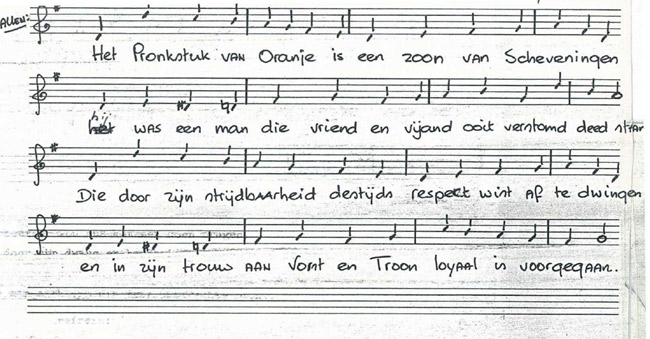 Allen:
Het Pronkstuk van Oranje is een zoon van Scheveningen
hij was een man die vriend en vijand ooit verstomd deed staan
Die door zijn strijdbaarheid destijds respect wist af te dwingen
en in zijn trouw aan Vorst en Troon loyaal is voorgegaan.